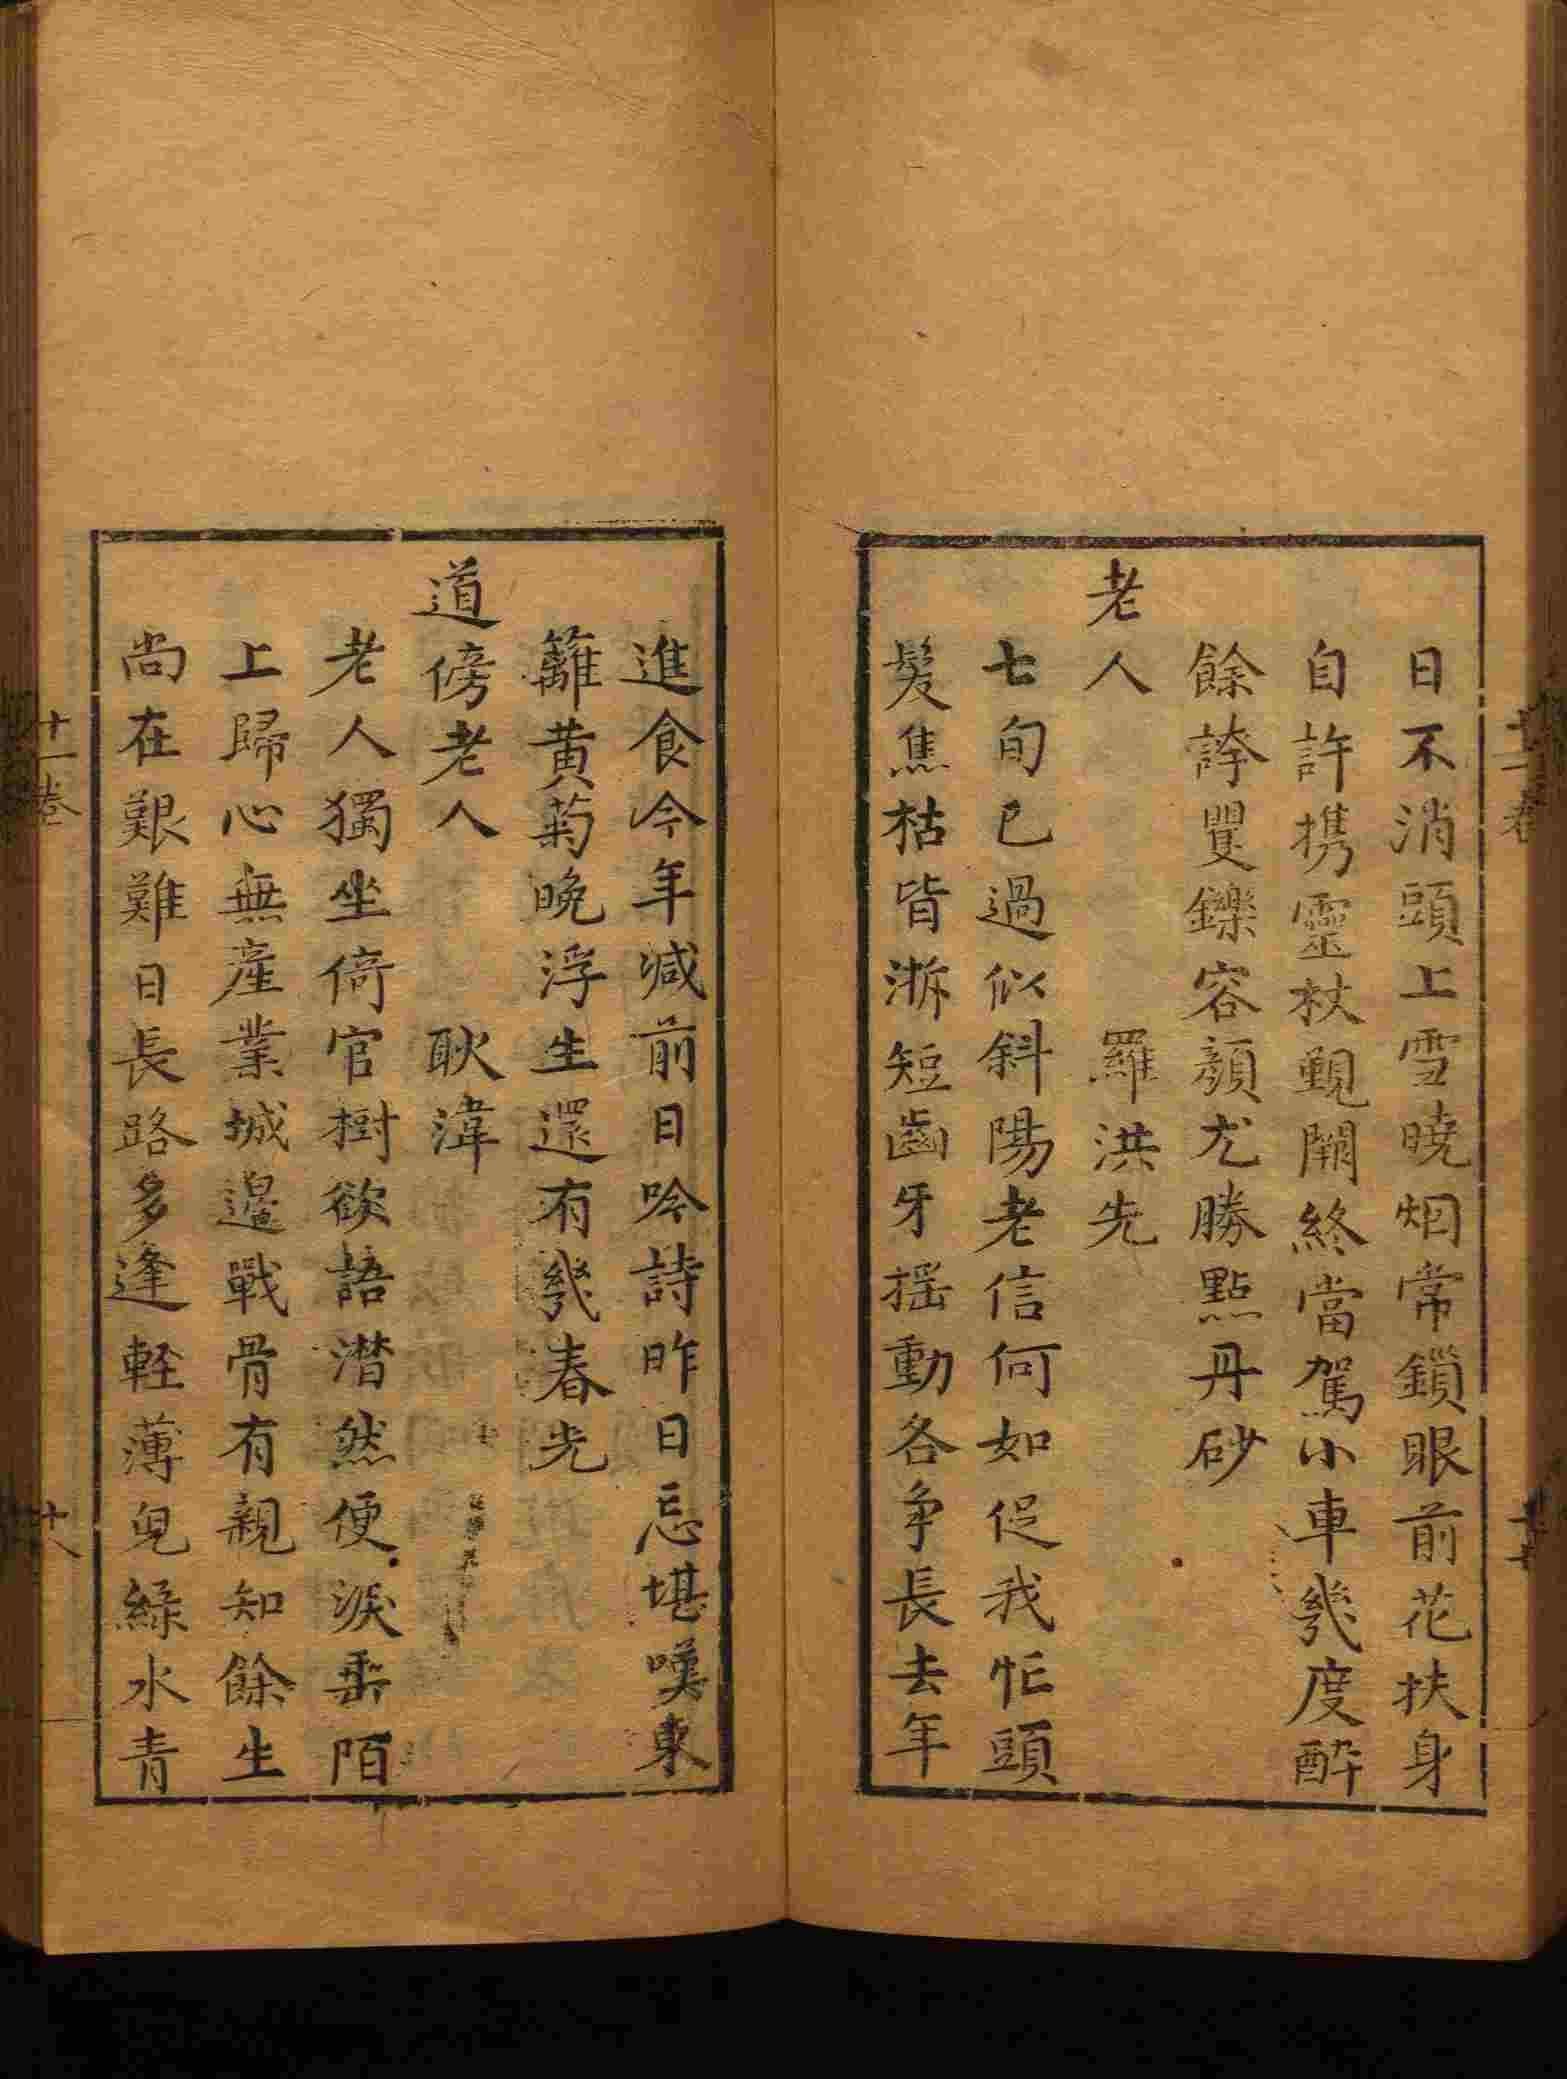 日不消頭上雪曉烟常鎖眼前花扶身
自許携靈杖覲闕終當駕小車幾度醉
餘誇矍鑠容顏尤勝點丹砂
老人　羅洪先
七旬已過似斜陽老信何如促我忙頭
髮焦枯皆漸短齒牙揺動各争長去年
進食今年减前日吟詩昨日忘堪嘆東
籬黄菊晚浮生還有幾春光
道傍老人　耿湋
老人獨坐倚官樹欲語潜然便淚垂陌
上歸心無產業城邉戰骨有親知餘生
尚在艱難日長路多逢軽薄皃綠水青
十一卷
十八